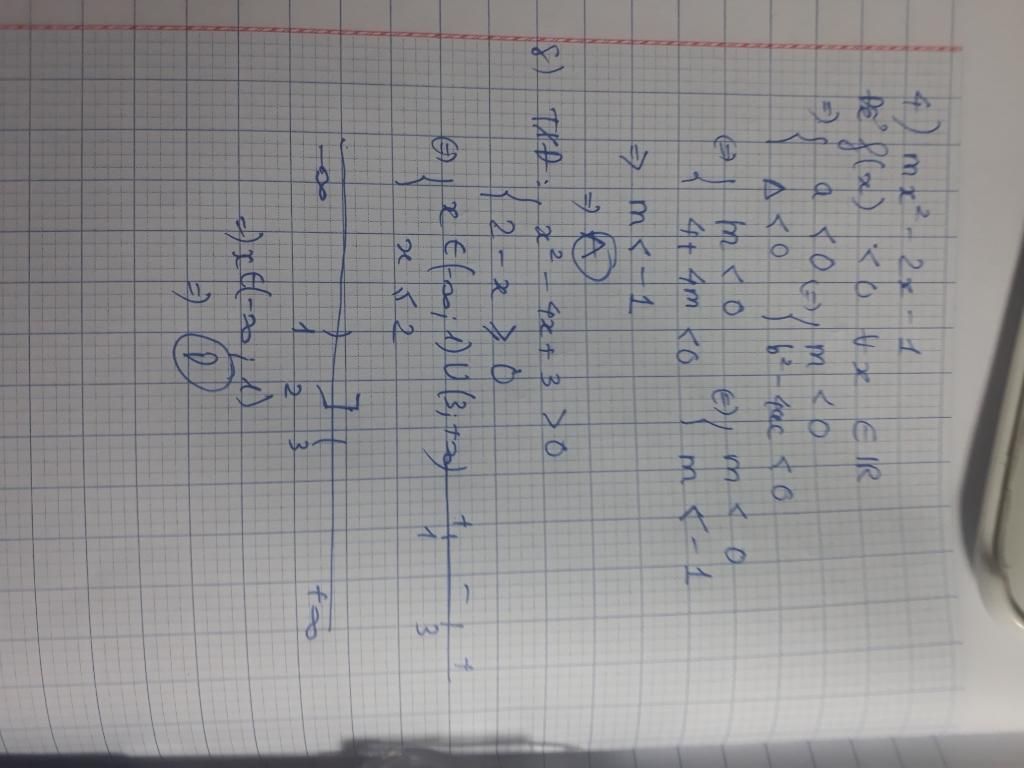 4) mx² - 2x - 1
Để f(x) < 0 ∀ x ∈ ℝ
⇒ { a < 0 ⇔ { m < 0
Δ < 0 { b² - 4ac < 0
⇔ { m < 0 ⇔ { m < 0
4 + 4m < 0 { m < -1
⇒ m < -1
⇒ A
8) TXĐ: { x² - 4x + 3 > 0
{ 2 - x ⩾ 0
⇔ { x ∈ (-∞; 1) ∪ (3; +∞) + 1 - 3 +
x ⩽ 2
-∞ 1 ) 2 ] 3 ( +∞
⇒ x ∈ (-∞, 1)
⇒ D